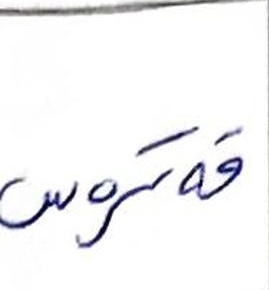 قەتروس